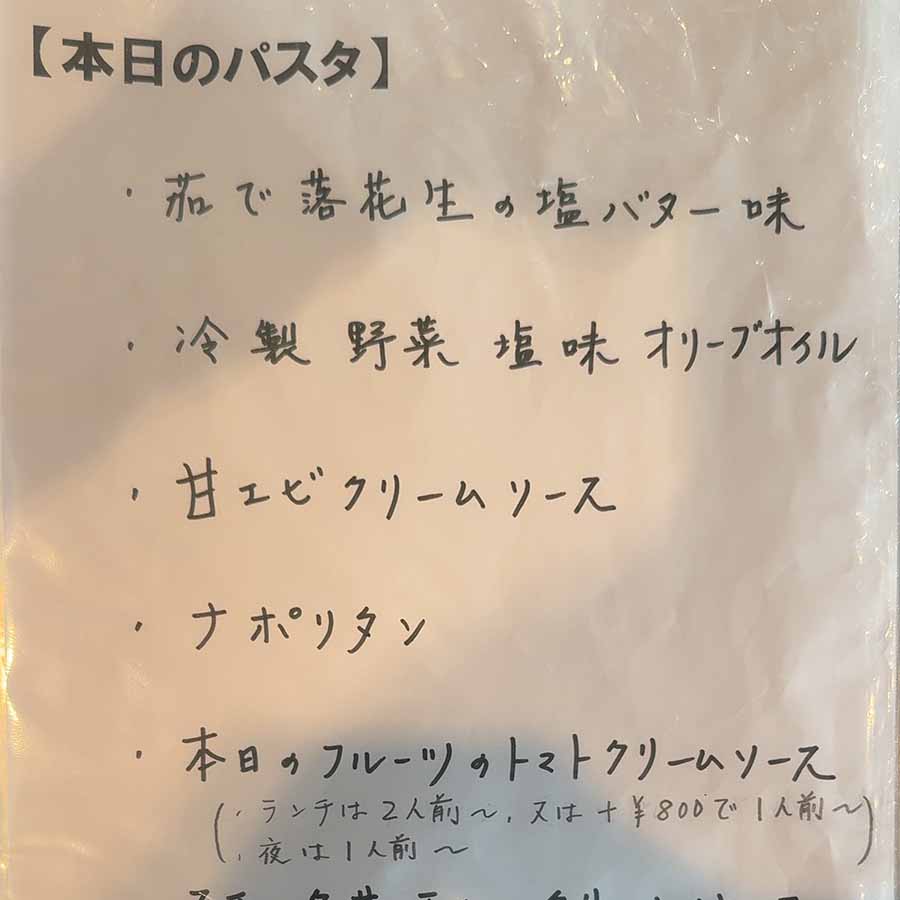 【本日のパスタ】
・茹で落花生の塩バター味
・冷製 野菜 塩味 オリーブオイル
・甘エビクリームソース
・ナポリタン
・本日のフルーツのトマトクリームソース
(・ランチは2人前～、又は+¥800で1人前～)
・夜は1人前～